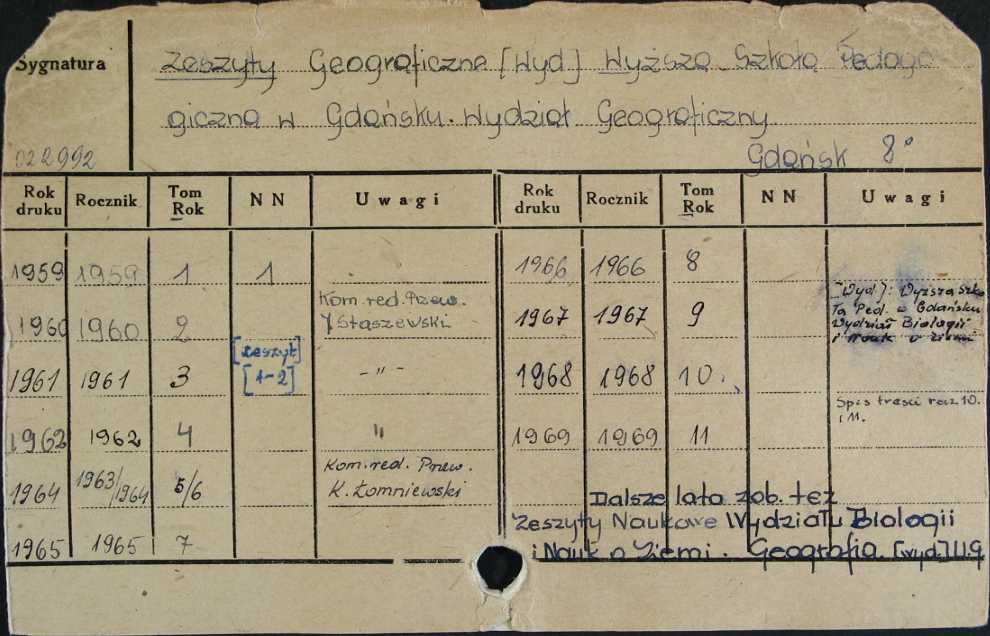 Sygnatura
Zeszyty Geograficzne [Wyd] Wyższa Szkoła Pedago
giczna w Gdańsku. Wydział Geograficzny
022992
Gdańsk 8°
Rok druku Rocznik Tom Rok NN Uwagi Rok druku Rocznik Tom Rok NN Uwagi
1959 1959 1 1
1960 1960 2 Kom. red. Przew. J Staszewski
1961 1961 3 [zeszyt] [1-2] - " -
1962 1962 4 "
1964 1963/1964 5/6 Kom. red. Przew. K. Łomniewski
1965 1965 7
1966 1966 8
1967 1967 9 [Wyd]: Wyższa Szko
ła Ped. w Gdańsku
Wydział Biologii
i Nauk o Ziemi
1968 1968 10
1969 1969 11 Spis treści rocz 10.
i 11.
Dalsze lata zob. też
Zeszyty Naukowe Wydziału Biologii
i Nauk o Ziemi. Geografia. [wyd] U.G